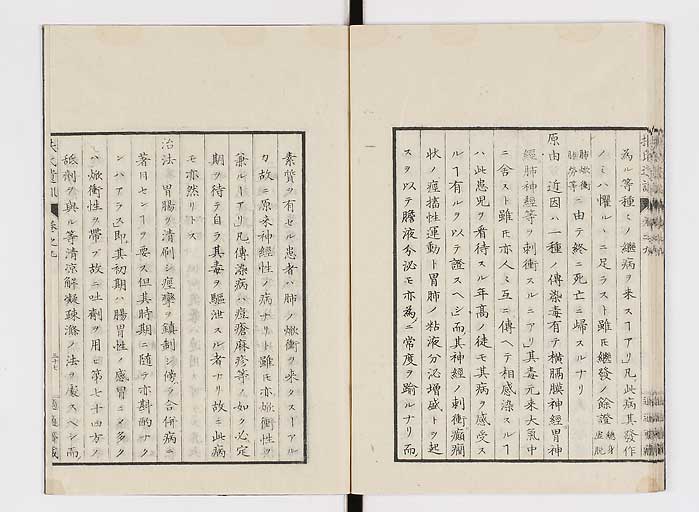 為ル等種々ノ継病ヲ来スヿアリ凡此病其發作
ノミハ懼ルヽニ足ラスト雖モ継發ノ餘證 總身虚脱
肺焮衝腦労等ニ由テ終ニ死亡ニ帰スルナリ
原由 近因ハ一種ノ傳染毒有テ横膈膜神經胃神
經肺神經等ヲ刺衝スルニアリ其毒元来大氣中
ニ舎スト雖モ亦人々互ニ傳ヘテ相感染スルヿ
ハ此患児ヲ看待スル年高ノ徒モ其病ヲ感受ス
ルヿ有ルヲ以テ證スヘシ而其神經ノ刺衝癲癇
状ノ痙搐性運動ト胃肺ノ粘液分泌増盛トヲ起
スヲ以テ膽液分泌モ亦為ニ常度ヲ踰ルナリ而
素質ヲ有セル患者ハ肺ノ焮衝ヲ来タスヿアル
カ故ニ原来神經性ノ病ナリト雖モ亦焮衝性ヲ
兼ルヿアリ凡傳染病ハ痘瘡麻疹等ノ如ク必定
期ヲ待テ自ラ其毒ヲ驅泄スル者ナリ故ニ此病
モ亦然リトス
治法 胃腸ヲ清刷シ痙攣ヲ鎮制シ傍ラ合併病ニ
著目センヿヲ要ス但其時期ニ随テ亦斟酌ナク
ンハアラス即其初期ハ腸胃性ノ感冒ニメ多ク
ハ焮衝性ヲ帶フ故ニ吐劑ヲ用ヒ第七十四方ノ
舐劑ヲ與ル等清涼解凝疎滌ノ法ヲ處スヘシ而
卷之九
三十七